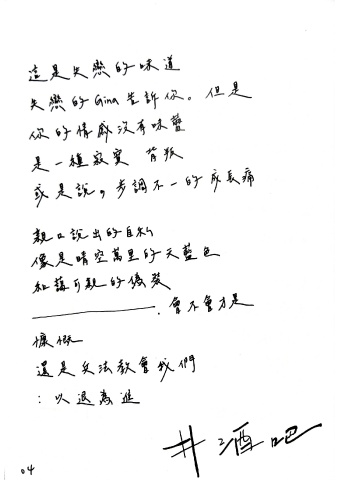 這是失戀的味道
失戀的Gina告訴你。但是
你的情感沒有味蕾
是一種寂寞 背叛
或是說，步調不一的成長痛
親口說出的自私
像是晴空萬里的天藍色
和藹可親的偽裝
————————. 會不會才是
慷慨
還是文法教會我們
：以退為進
#酒吧
04